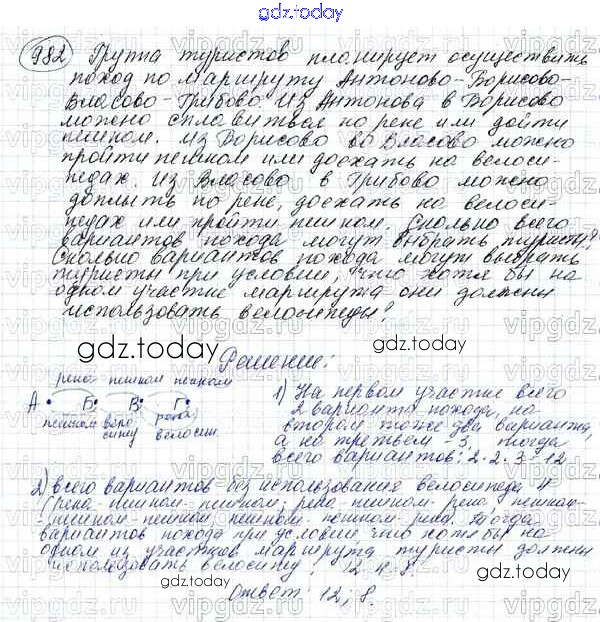 gdz.today
982 Группа туристов планирует осуществить
поход по маршруту Антоново-Борисово-
Власово-Грибово. Из Антонова в Борисово
можно сплавиться по реке или дойти
пешком. Из Борисово во Власово можно
пройти пешком или доехать на велоси-
педах. Из Власово в Грибово можно
доплыть по реке, доехать на велоси-
педах или пройти пешком. Сколько всего
вариантов похода могут выбрать туристы?
Сколько вариантов похода могут выбрать
туристы при условии, что хотя бы на
одном участке маршрута они должны
использовать велосипеды?
gdz.today
gdz.today
Решение:
река пешком пешком
А Б В Г
пешком вело река
сипед велосип.
1) На первом участке всего
2 варианта похода, на
втором тоже два варианта,
а на третьем - 3, тогда
всего вариантов: 2·2·3=12
2) всего вариантов без использования велосипеда 4
(река-пешком-пешком, река-пешком-река, пешком-
-пешком-пешком, пешком-пешком-река. Тогда
вариантов похода при условии, что хотя бы на
одном из участков маршрута туристы должны
использовать велосипед: 12-4=8.
gdz.today
gdz.today
Ответ: 12; 8.